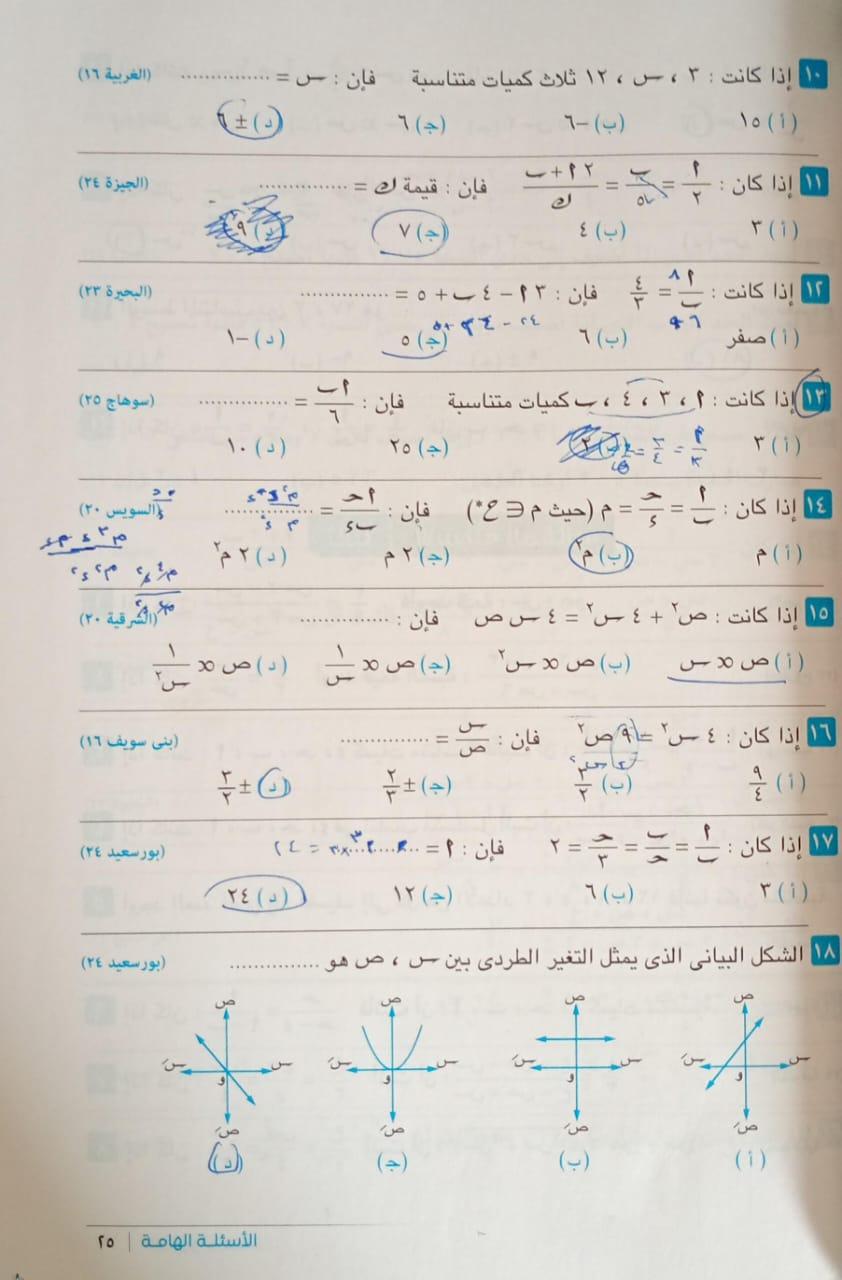 ١٠ إذا كانت : ٣ ، س ، ١٢ ثلاث كميات متناسبة فإن : س = ............... (الغربية ١٦)
(أ) ١٥ (ب) -٦ (ج) ٦ (د) ± ٦
١١ إذا كان : ٢/٢ = ب/٥ = (٢ ٢ + ب)/ك فإن : قيمة ك = ............... (الجيزة ٢٤)
(أ) ٣ (ب) ٤ (ج) ٧ (د) ٩
١٢ إذا كانت : ٢/ب = ٤/٣ فإن : ٣ ٢ - ٤ ب + ٥ = ............... (البحيرة ٢٣)
(أ) صفر (ب) ٦ (ج) ٥ (د) -١
١٣ إذا كانت : ٢ ، ٣ ، ٤ ، ب كميات متناسبة فإن : ٢ب/٦ = ............... (سوهاج ٢٥)
(أ) ٣ (ب) ٢ (ج) ٢٥ (د) ١٠
١٤ إذا كان : ٢/ب = حـ/ء = م (حيث م ∈ ع*) فإن : ٢حـ/ب ء = ............... (السويس ٢٠)
(أ) م (ب) م٢ (ج) ٢ م (د) ٢ م٢
١٥ إذا كانت : ص٢ + ٤ س٢ = ٤ س ص فإن : ............... (الشرقية ٢٠)
(أ) ص ∝ س (ب) ص ∝ س٢ (ج) ص ∝ ١/س (د) ص ∝ ١/س٢
١٦ إذا كان : ٤ س٢ = ٩ ص٢ فإن : س/ص = ............... (بنى سويف ١٦)
(أ) ٩/٤ (ب) ٣/٢ (ج) ± ٢/٣ (د) ± ٣/٢
١٧ إذا كان : ٢/ب = ب/حـ = حـ/٣ = ٢ فإن : ٢ = ............... = ٢٤ (بورسعيد ٢٤)
(أ) ٣ (ب) ٦ (ج) ١٢ (د) ٢٤
١٨ الشكل البيانى الذى يمثل التغير الطردى بين س ، ص هو ............... (بورسعيد ٢٤)
ص ص ص ص
س سَ س سَ س سَ س سَ
و و و و
صَ صَ صَ صَ
(أ) (ب) (ج) (د)
الأسئلة الهامة | ٢٥